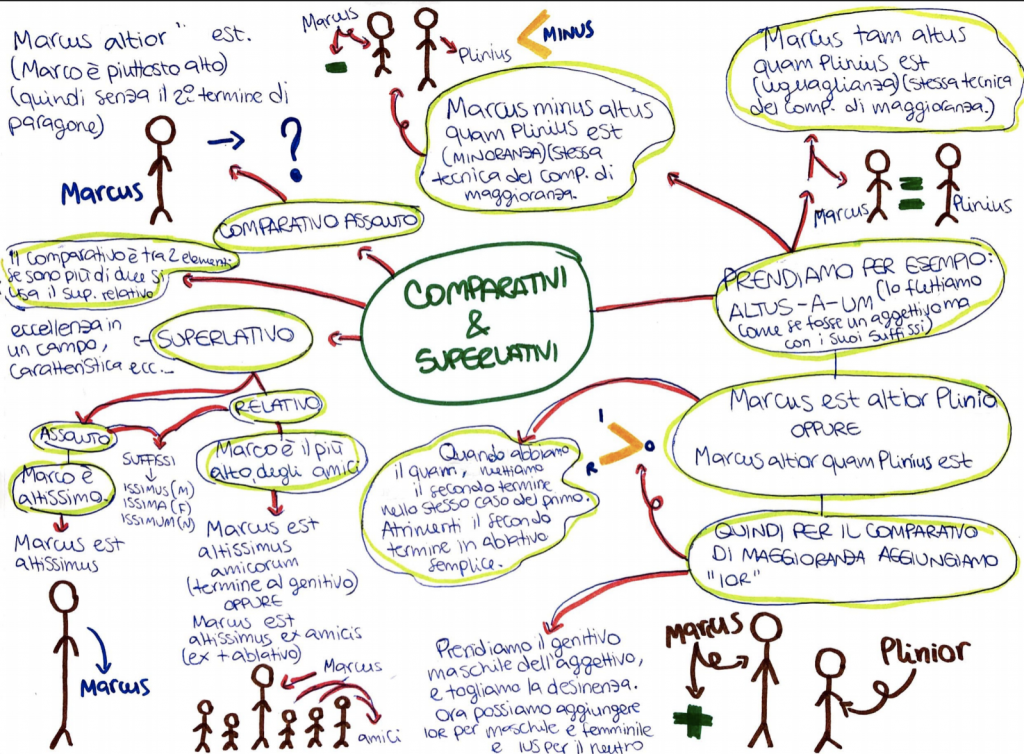 COMPARATIVI
&
SUPERLATIVI
Marcus altior " est.
(Marco è piuttosto alto)
(quindi senza il 2° termine di
paragone)
Marcus
?
COMPARATIVO ASSOLUTO
Il comparativo è tra 2 elementi
se sono più di due si
usa il sup. relativo
SUPERLATIVO
eccellenza in
un campo,
caratteristica ecc...
ASSOLUTO
Marco è
altissimo.
Marcus est
altissimus
Marcus
SUFFISSI
ISSIMUS (M)
ISSIMA (F)
ISSIMUM (N)
RELATIVO
Marco è il più
alto, degli amici
Marcus est
altissimus
amicorum
(termine al genitivo)
OPPURE
Marcus est
altissimus ex amicis
(ex + ablativo)
Marcus
amici
Marcus
-
Plinius
< MINUS
Marcus minus altus
quam Plinius est
(MINORANZA) (stessa
tecnica del comp. di
maggioranza.
Marcus tam altus
quam Plinius est
(uguaglianza) (stessa tecnica
del comp. di maggioranza.)
Marcus
=
Plinius
PRENDIAMO PER ESEMPIO:
ALTUS-A-UM (lo flettiamo
come se fosse un aggettivo ma
con i suoi suffissi)
Marcus est altior Plinio
OPPURE
Marcus altior quam Plinius est
Quando abbiamo
il quam, mettiamo
il secondo termine
nello stesso caso del primo.
Altrimenti il secondo
termine in ablativo
semplice.
I
> O
R
QUINDI PER IL COMPARATIVO
DI MAGGIORANZA AGGIUNGIAMO
"IOR"
Prendiamo il genitivo
maschile dell'aggettivo,
e togliamo la desinenza.
Ora possiamo aggiungere
IOR per maschile e femminile
e IUS per il neutro
Marcus
+
Plinior